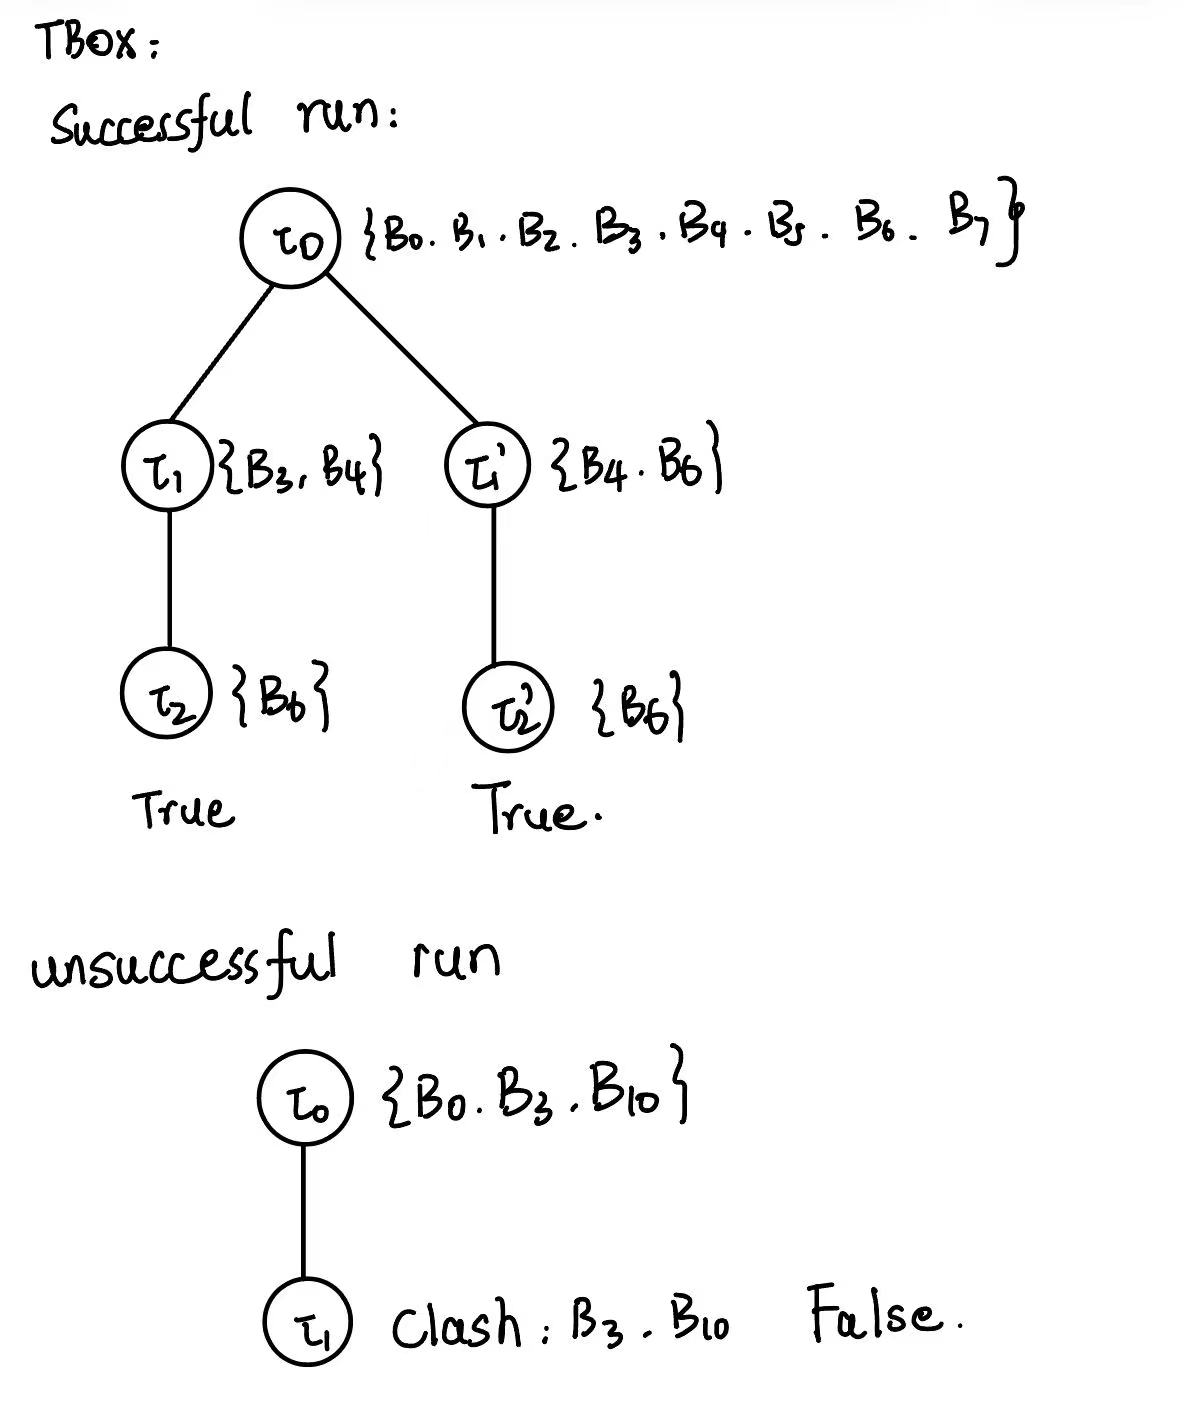 TBox:
Successful run:
τ0 {B0. B1. B2. B3. B4. B5. B6. B7}
τ1 {B3, B4} τ1' {B4. B6}
τ2 {B6} τ2' {B6}
True True.
unsuccessful run
τ0 {B0. B3. B10}
τ1 Clash: B3. B10 False.